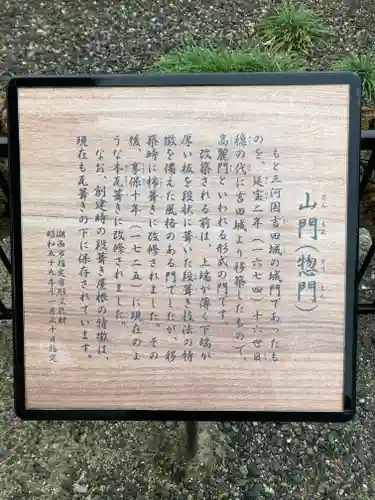 山門（惣門）
さんもん　そうもん
もと三河国吉田城の城門であったも
のを、延宝二年（一六七四）十六世日
の代に吉田城より移築したもので、
高麗門といわれる形式の門です。
改築される前は、上端が薄く下端が
厚い板を段状に葺いた段葺き技法の特
徴を備えた風格のある門でしたが、移
築時に杮葺きに改修されました。その
後、享保十年（一七二五）に現在のよ
うな本瓦葺きに改修されました。
なお、創建時の段葺き屋根の特徴は、
現在も瓦葺きの下に保存されています。
湖西市指定有形文化財
昭和五十九年十一月二十日指定